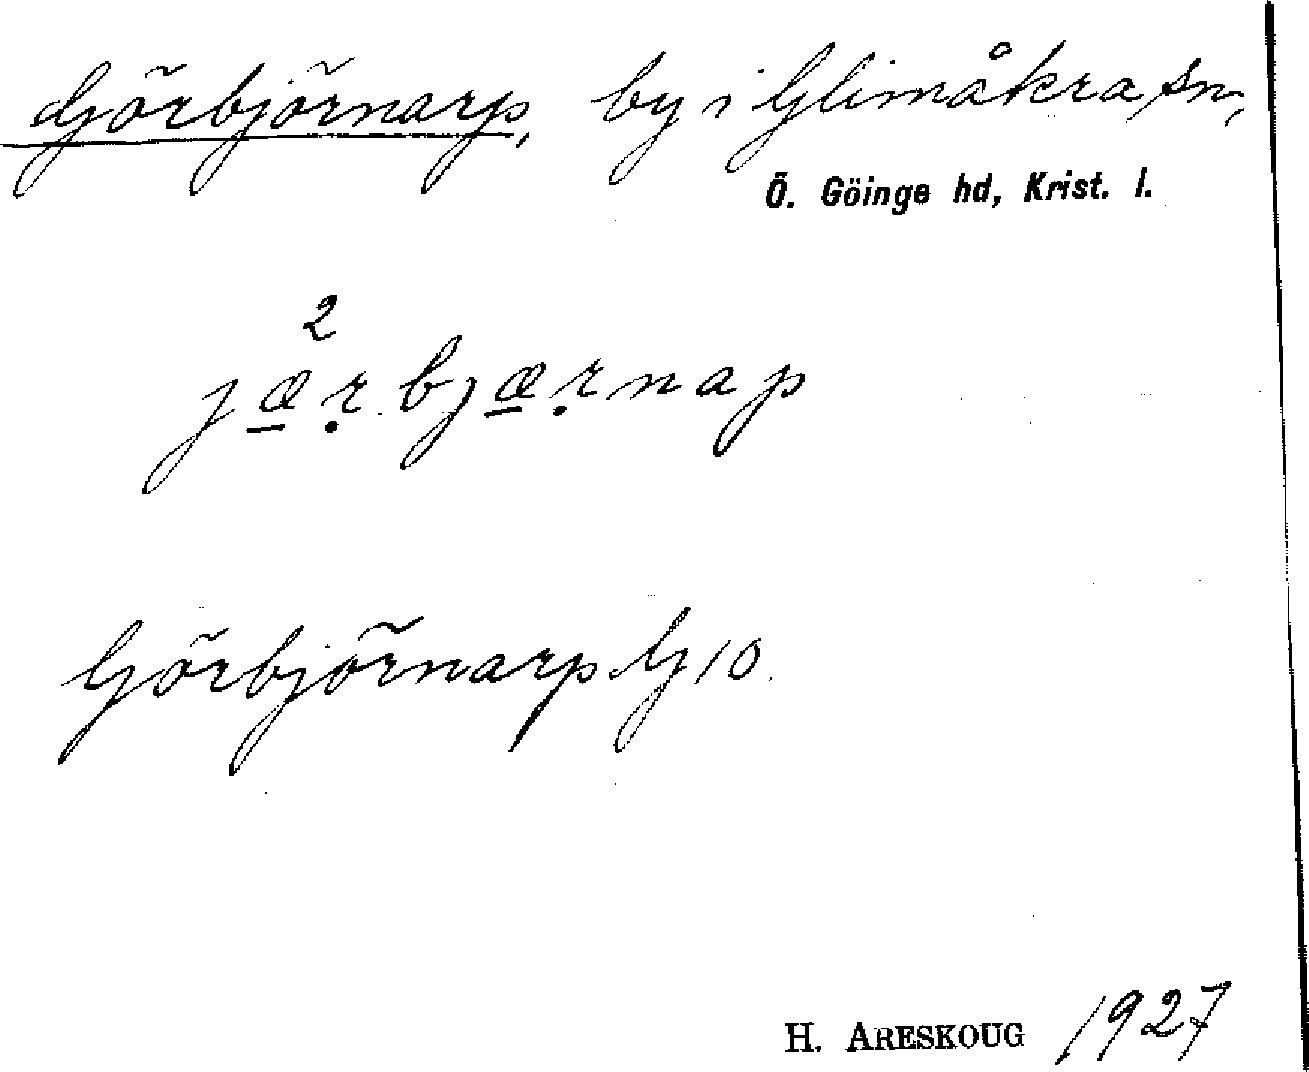 Görbjörnarp, by i Glimåkra sn,
Ö. Göinge hd, Krist. l.
2
jæ̱ṛbjæ̱ṛnap
Görbjörnarp G 10.
H. ARESKOUG 1927